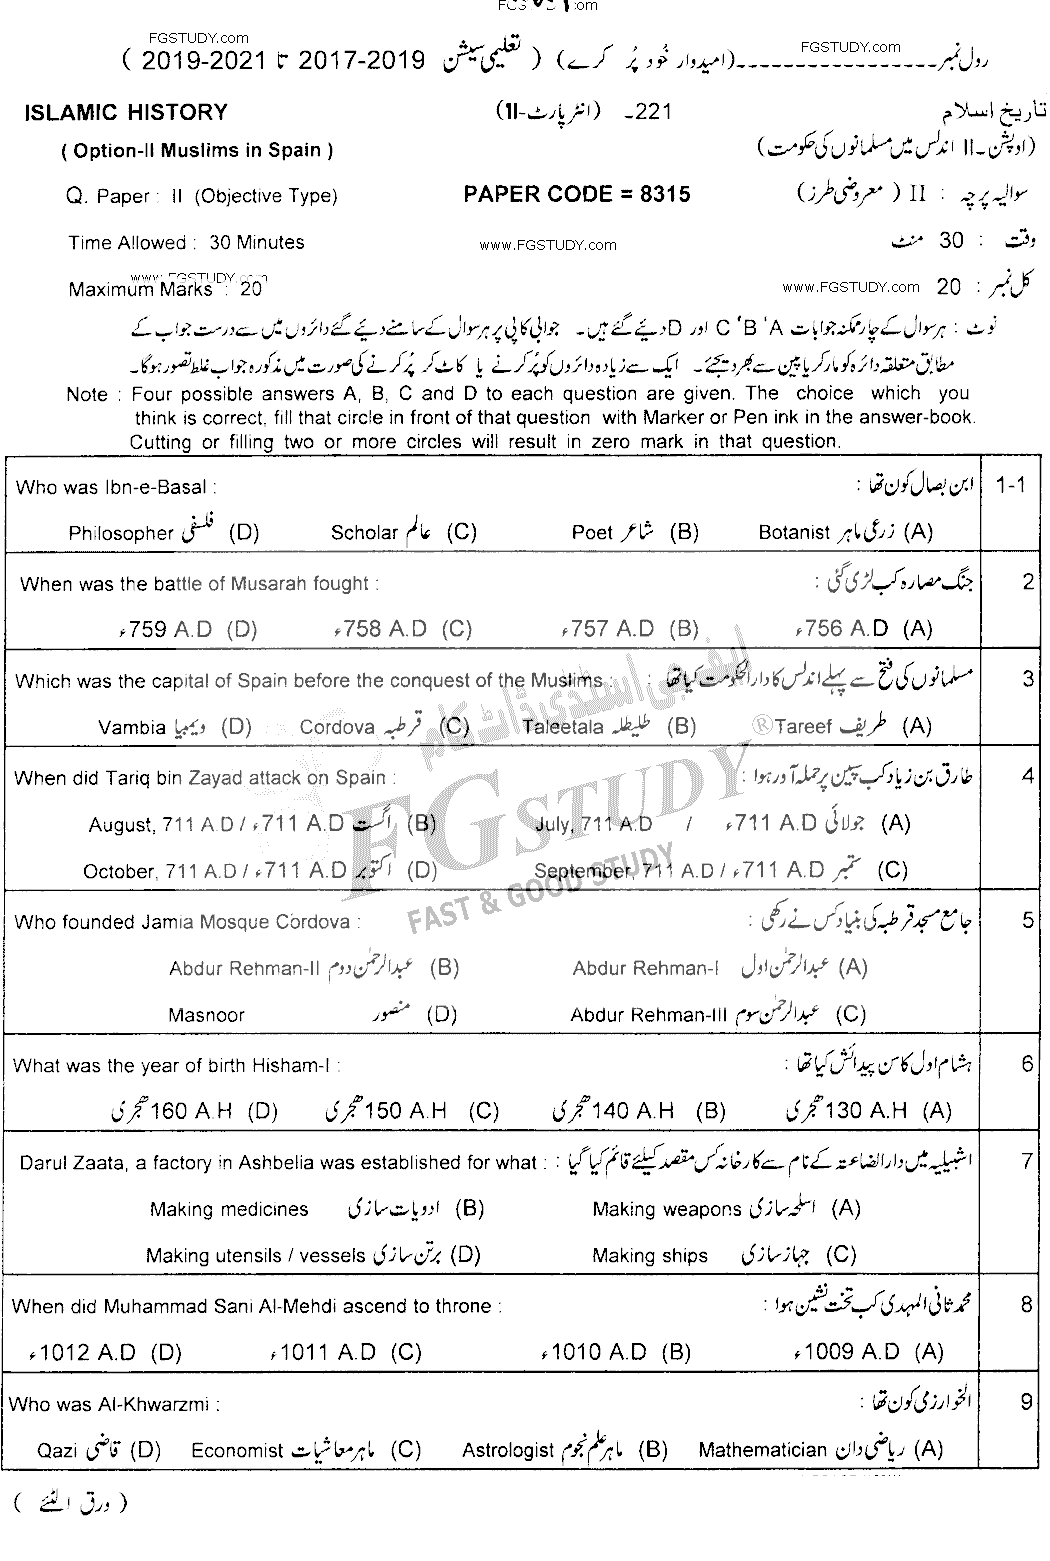 FGSTUDY.com
FGSTUDY.com
رول نمبر ـــــــــــــــــ (امیدوار خُود پُر کرے) ( تعلیمی سیشن 2017-2019 تا 2019-2021 )
ISLAMIC HISTORY 221ـ (انٹر پارٹ-II) تاریخ اسلام
( Option-II Muslims in Spain ) (اوپشن-II اندلس میں مسلمانوں کی حکومت)
Q. Paper : II (Objective Type) PAPER CODE = 8315 سوالیہ پرچہ : II ( معروضی طرز)
Time Allowed : 30 Minutes www.FGSTUDY.com وقت : 30 منٹ
Maximum Marks : 20 www.FGSTUDY.com www.FGSTUDY.com کل نمبر : 20
نوٹ : ہر سوال کے چار ممکنہ جوابات A ‘ B ‘ C اور D دیئے گئے ہیں۔ جوابی کاپی پر ہر سوال کے سامنے دیئے گئے دائروں میں سے درست جواب کے
مطابق متعلقہ دائرہ کو مارکر یا پین سے بھر دیجئے۔ ایک سے زیادہ دائروں کو پُر کرنے یا کاٹ کر پُر کرنے کی صورت میں مذکورہ جواب غلط تصور ہوگا۔
Note : Four possible answers A, B, C and D to each question are given. The choice which you
think is correct, fill that circle in front of that question with Marker or Pen ink in the answer-book.
Cutting or filling two or more circles will result in zero mark in that question.
Who was Ibn-e-Basal : ابن بصال کون تھا : 1-1
Philosopher فلسفی (D) Scholar عالم (C) Poet شاعر (B) Botanist زرعی ماہر (A)
When was the battle of Musarah fought : جنگ مصارہ کب لڑی گئی : 2
759 A.D ء (D) 758 A.D ء (C) 757 A.D ء (B) 756 A.D ء (A)
Which was the capital of Spain before the conquest of the Muslims : مسلمانوں کی فتح سے پہلے اندلس کا دارالحکومت کیا تھا : 3
Vambia ویمبیا (D) Cordova قرطبہ (C) Taleetala طلیطلہ (B) Tareef طریف (A)
When did Tariq bin Zayad attack on Spain : طارق بن زیاد کب سپین پر حملہ آور ہوا : 4
August, 711 A.D / اگست 711 A.D ء (B) July, 711 A.D / جولائی 711 A.D ء (A)
October, 711 A.D / اکتوبر 711 A.D ء (D) September, 711 A.D / ستمبر 711 A.D ء (C)
Who founded Jamia Mosque Cordova : جامع مسجد قرطبہ کی بنیاد کس نے رکھی : 5
Abdur Rehman-II عبدالرحمٰن دوم (B) Abdur Rehman-I عبدالرحمٰن اول (A)
Masnoor منصور (D) Abdur Rehman-III عبدالرحمٰن سوم (C)
What was the year of birth Hisham-I : ہشام اول کا سن پیدائش کیا تھا : 6
160 A.H ہجری (D) 150 A.H ہجری (C) 140 A.H ہجری (B) 130 A.H ہجری (A)
Darul Zaata, a factory in Ashbelia was established for what : اشبیلیہ میں دارالضاعتہ کے نام سے کارخانہ کس مقصد کیلئے قائم کیا گیا : 7
Making medicines ادویات سازی (B) Making weapons اسلحہ سازی (A)
Making utensils / vessels برتن سازی (D) Making ships جہاز سازی (C)
When did Muhammad Sani Al-Mehdi ascend to throne : محمد ثانی المہدی کب تخت نشین ہوا : 8
1012 A.D ء (D) 1011 A.D ء (C) 1010 A.D ء (B) 1009 A.D ء (A)
Who was Al-Khwarzmi : الخوارزمی کون تھا : 9
Qazi قاضی (D) Economist ماہر معاشیات (C) Astrologist ماہر علم نجوم (B) Mathematician ریاضی دان (A)
( ورق الٹیے )
ایف جی اسٹڈی ڈاٹ کام
FG STUDY ®
FAST & GOOD STUDY